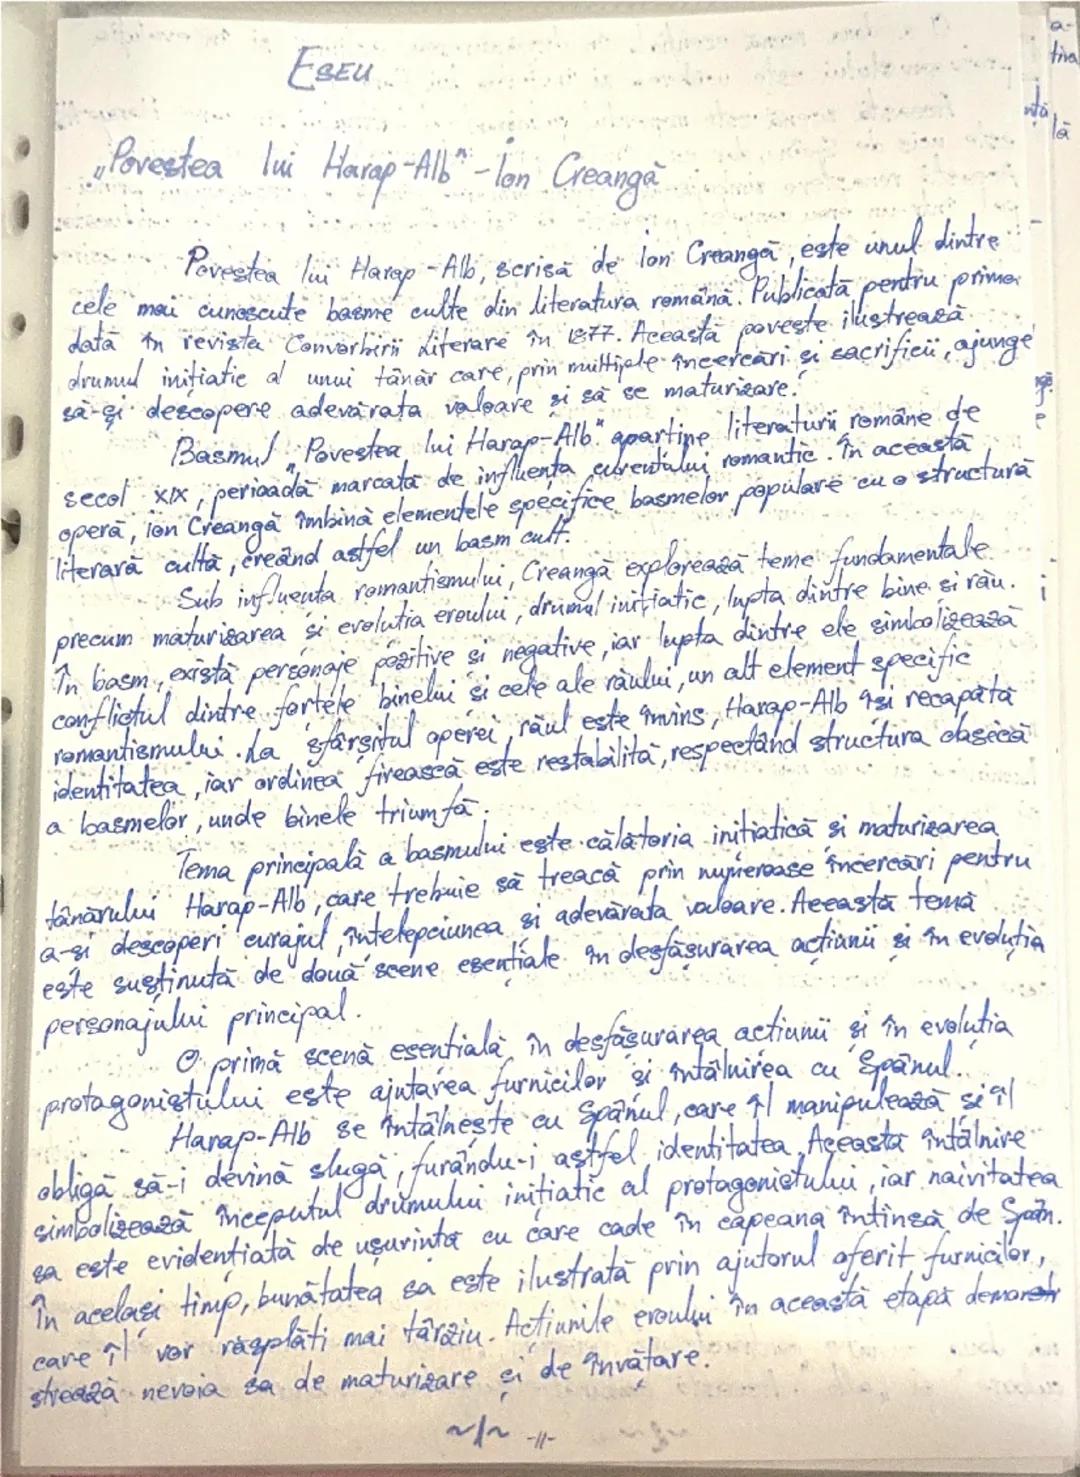 ESEU
„Povestea lui Harap-Alb" - Ion Creangă
Povestea lui Harap-Alb, scrisă de Ion Creangă, este unul dintre
cele mai cunoscute basme culte din literatura română. Publicată pentru prima
dată în revista Convorbirii Literare în 1877. Această poveste ilustrează
drumul inițiatic al unui tânăr care, prin multiple încercări și sacrificii, ajunge
să-și descopere adevărata valoare și să se maturizare.
Basmul „Povestea lui Harap-Alb" aparține literaturii române de
secol XIX, perioadă marcată de influența curentului romantic. În această
operă, ion Creangă îmbină elementele specifice basmelor populare cu o structură
literară cultă, creând astfel un basm cult.
Sub influența romantismului, Creangă explorează teme fundamentale
precum maturizarea și evoluția eroului, drumul inițiatic, lupta dintre bine și rău.
În basm, există personaje pozitive și negative, iar lupta dintre ele simbolizează
conflictul dintre forțele binelui și cele ale răului, un alt element specific
romantismului. La sfârșitul operei, răul este învins, Harap-Alb își recapătă
identitatea, iar ordinea firească este restabilită, respectând structura clasică
a basmelor, unde binele triumfă.
Tema principală a basmului este călătoria inițiatică și maturizarea
tânărului Harap-Alb, care trebuie să treacă prin numeroase încercări pentru
a-și descoperi curajul, înțelepciunea și adevărata valoare. Această temă
este susținută de două scene esențiale în desfășurarea acțiunii și în evoluția
personajului principal.
O primă scenă esențială în desfășurarea acțiunii și în evoluția
protagonistului este ajutarea furnicilor și întâlnirea cu Spânul.
Harap-Alb se întâlnește cu Spânul, care îl manipulează și îl
obligă să-i devină slugă, furându-i astfel identitatea. Aceasta întâlnire
simbolizează începutul drumului inițiatic al protagonistului, iar naivitatea
sa este evidențiată de ușurința cu care cade în capcana întinsă de Spân.
În același timp, bunătatea sa este ilustrată prin ajutorul oferit furnicilor,
care îl vor răsplăti mai târziu. Acțiunile eroului în această etapă demon
strează nevoia sa de maturizare și de învățare.
~1~ -11-